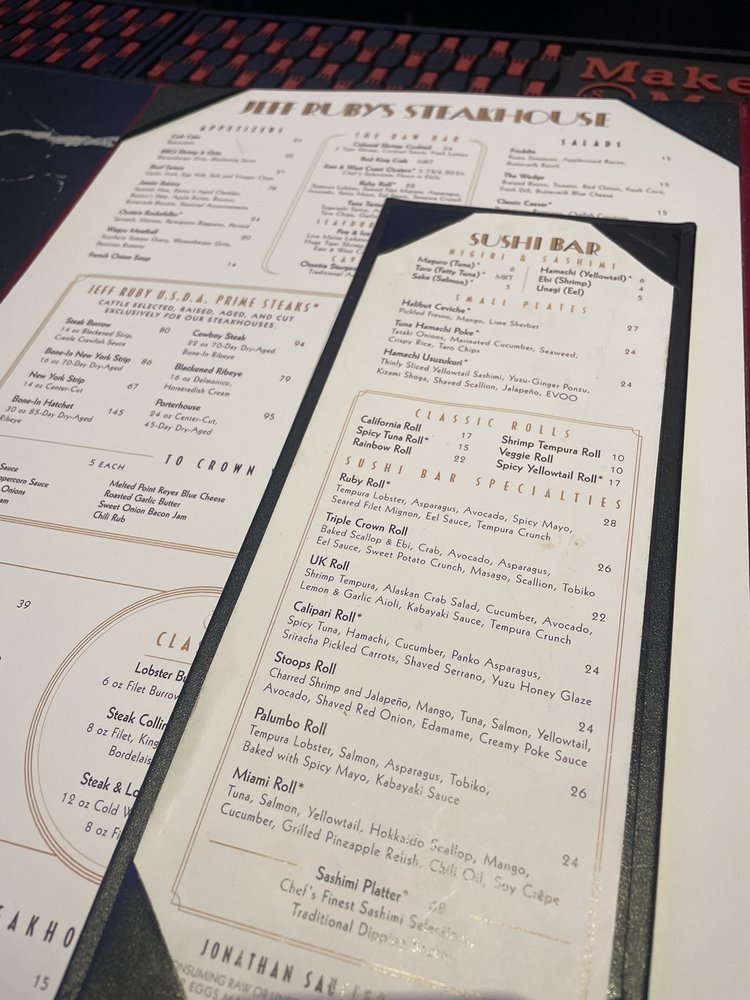 Make
JEFF RUBY'S STEAKHOUSE
APPETIZERS
BBQ Shrimp & Grits
Weisenberger Grits, Blackening Spice
Wagyu Meatball
French Onion Soup 14
THE RAW BAR
Colossal Shrimp Cocktail
Red King Crab MKT
East & West Coast Oysters*
Ruby Roll*
SALADS
Freddie 15
Roma Tomatoes, Applewood Bacon,
Buttermilk Ranch
The Wedge 15
Classic Caesar* 15
JEFF RUBY U.S.D.A. PRIME STEAKS*
CATTLE SELECTED, RAISED, AGED, AND CUT
EXCLUSIVELY FOR OUR STEAKHOUSES.
Steak Burrow 80
14 oz Blackened Strip,
Creole Crawfish Sauce
Bone-In New York Strip 86
16 oz 70-Day Dry-Aged
New York Strip 67
14 oz Center-Cut
Bone-In Hatchet 145
30 oz 85-Day Dry-Aged
Ribeye
Cowboy Steak 94
22 oz 70-Day Dry-Aged
Bone-In Ribeye
Blackened Ribeye 79
16 oz Delmonico,
Horseradish Cream
Porterhouse 95
24 oz Center-Cut,
45-Day Dry-Aged
TO CROWN
5 EACH
Sauce
Onions
Melted Point Reyes Blue Cheese
Roasted Garlic Butter
Sweet Onion Bacon Jam
Chili Rub
39
CLA
Lobster Bu
6 oz Filet Burrow
Steak Collin
8 oz Filet, King
Bordelais
Steak & Lo
12 oz Cold W
8 oz Fi
EAKHO
15
SUSHI BAR
NIGIRI & SASHIMI
Maguro (Tuna)* 6
Toro (Fatty Tuna)* MKT
Sake (Salmon)* 5
Hamachi (Yellowtail)* 6
Ebi (Shrimp) 4
Unagi (Eel) 5
SMALL PLATES
Halibut Ceviche* 27
Pickled Fresno, Mango, Lime Sherbet
Tuna Hamachi Poke* 24
Tataki Onions, Marinated Cucumber, Seaweed,
Crispy Rice, Taro Chips
Hamachi Usuzukuri* 24
Thinly Sliced Yellowtail Sashimi, Yuzu-Ginger Ponzu,
Kizami Shoga, Shaved Scallion, Jalapeño, EVOO
CLASSIC ROLLS
California Roll 17
Spicy Tuna Roll* 15
Rainbow Roll 22
Shrimp Tempura Roll 10
Veggie Roll 10
Spicy Yellowtail Roll* 17
SUSHI BAR SPECIALTIES
Ruby Roll* 28
Tempura Lobster, Asparagus, Avocado, Spicy Mayo,
Seared Filet Mignon, Eel Sauce, Tempura Crunch
Triple Crown Roll 26
Baked Scallop & Ebi, Crab, Avocado, Asparagus,
Eel Sauce, Sweet Potato Crunch, Masago, Scallion, Tobiko
UK Roll 22
Shrimp Tempura, Alaskan Crab Salad, Cucumber, Avocado,
Lemon & Garlic Aioli, Kabayaki Sauce, Tempura Crunch
Calipari Roll* 24
Spicy Tuna, Hamachi, Cucumber, Panko Asparagus,
Sriracha Pickled Carrots, Shaved Serrano, Yuzu Honey Glaze
Stoops Roll 24
Charred Shrimp and Jalapeño, Mango, Tuna, Salmon, Yellowtail,
Avocado, Shaved Red Onion, Edamame, Creamy Poke Sauce
Palumbo Roll 26
Tempura Lobster, Salmon, Asparagus, Tobiko,
Baked with Spicy Mayo, Kabayaki Sauce
Miami Roll* 24
Tuna, Salmon, Yellowtail, Hokkaido Scallop, Mango,
Cucumber, Grilled Pineapple Relish, Chili Oil, Soy Crêpe
Sashimi Platter* 68
Chef's Finest Sashimi Selections,
Traditional Dipping
JONATHAN